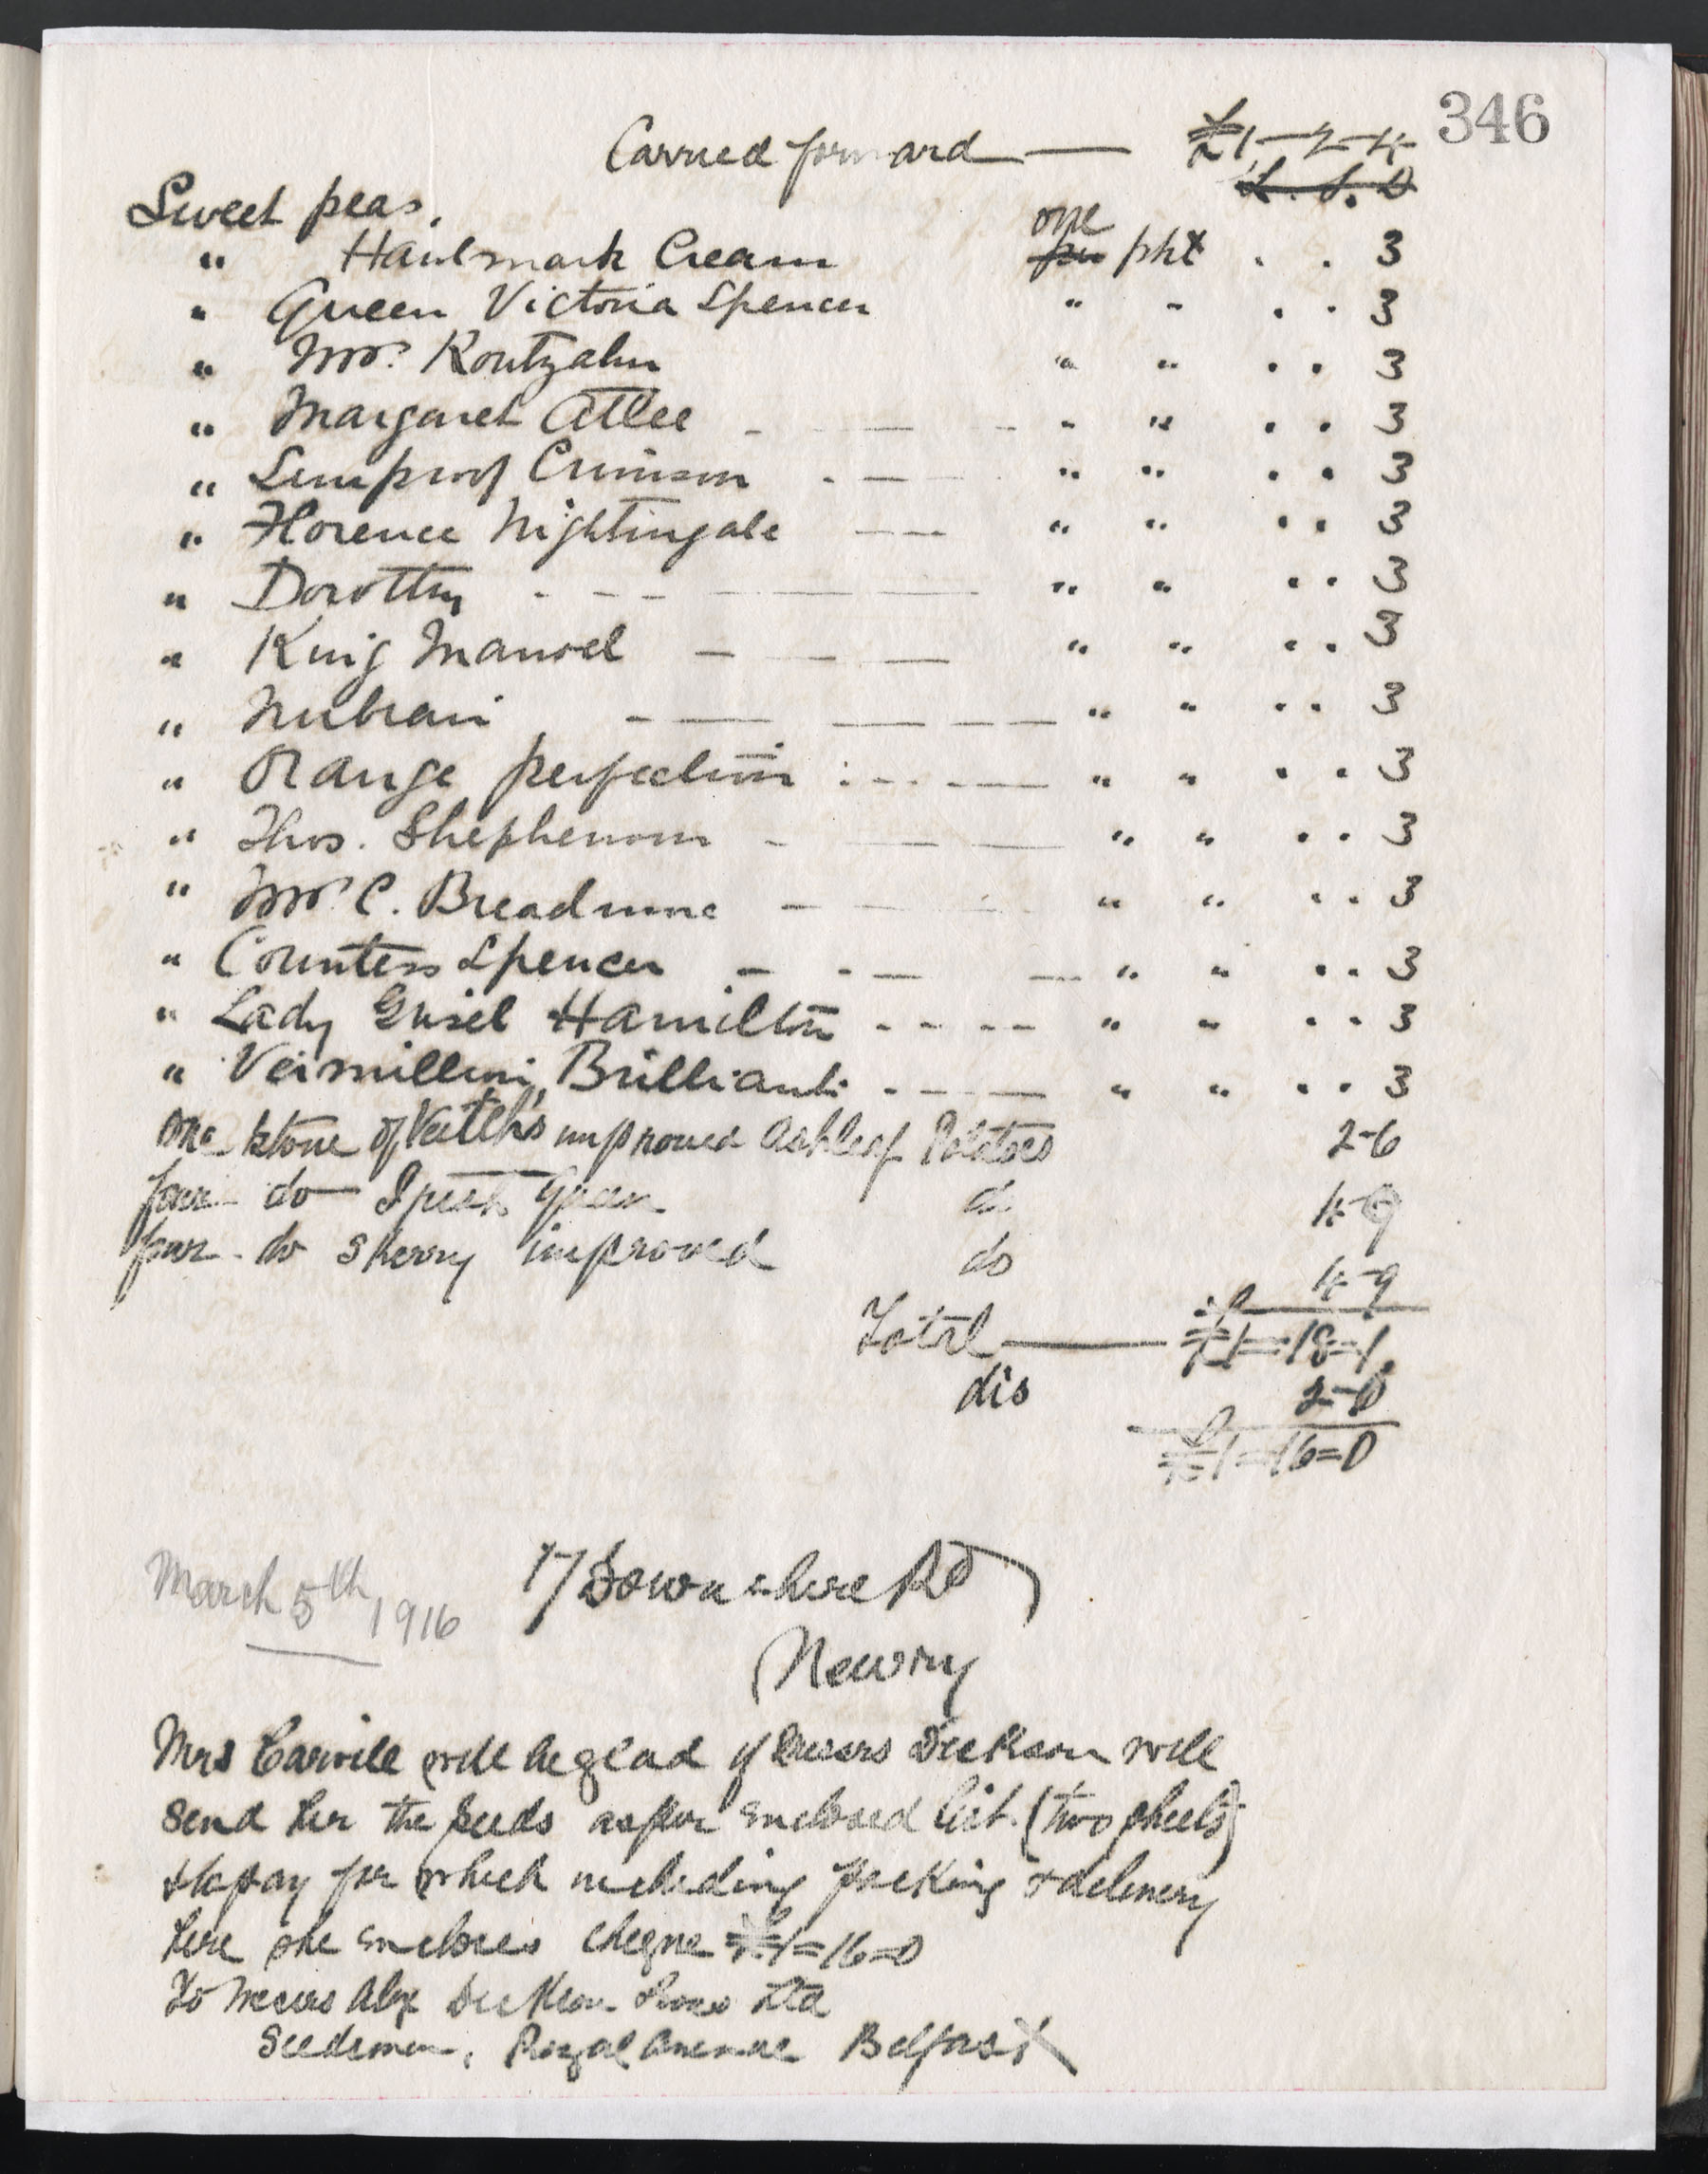 346
Carried forward — £1-2-4
£. S. D
Sweet peas.
one
" Hawlmark Cream pkt . . 3
" Queen Victoria Spencer " " . . 3
" Mrs. Routzahn " " . . 3
" Margaret Atlee - — - " " . . 3
" Sunproof Crimson - — " " . . 3
" Florence Nightingale — " " . . 3
" Dorothy - — " " . . 3
" King Manoel — " " . . 3
" Nubian — " " . . 3
" Orange perfection — " " . . 3
" Thos. Stephenson - — " " . . 3
" Mrs C. Breadmore - — " " . . 3
" Countess Spencer - - — " " . . 3
" Lady Grisel Hamilton - - - - " " . . 3
" Vermillion Brilliant - — " " . . 3
One stone of Veitch's improved Ashleaf Potatoes 2-6
four do - Irish Queen do. 4-9
four - do Sherry improved do 4-9
Total — £1=18=1
dis 2-1
£1=16=0
March 5th 1916
17 Downshire Rd
Newry
Mrs Carvill will be glad if Messrs Dickson will
send her the seeds as per enclosed list (two sheets)
& to pay for which including packing & delivery
here she encloses cheque £1=16=0
To Messrs Alex Dickson Sons Ltd
Seedsmen, Royal Avenue Belfast